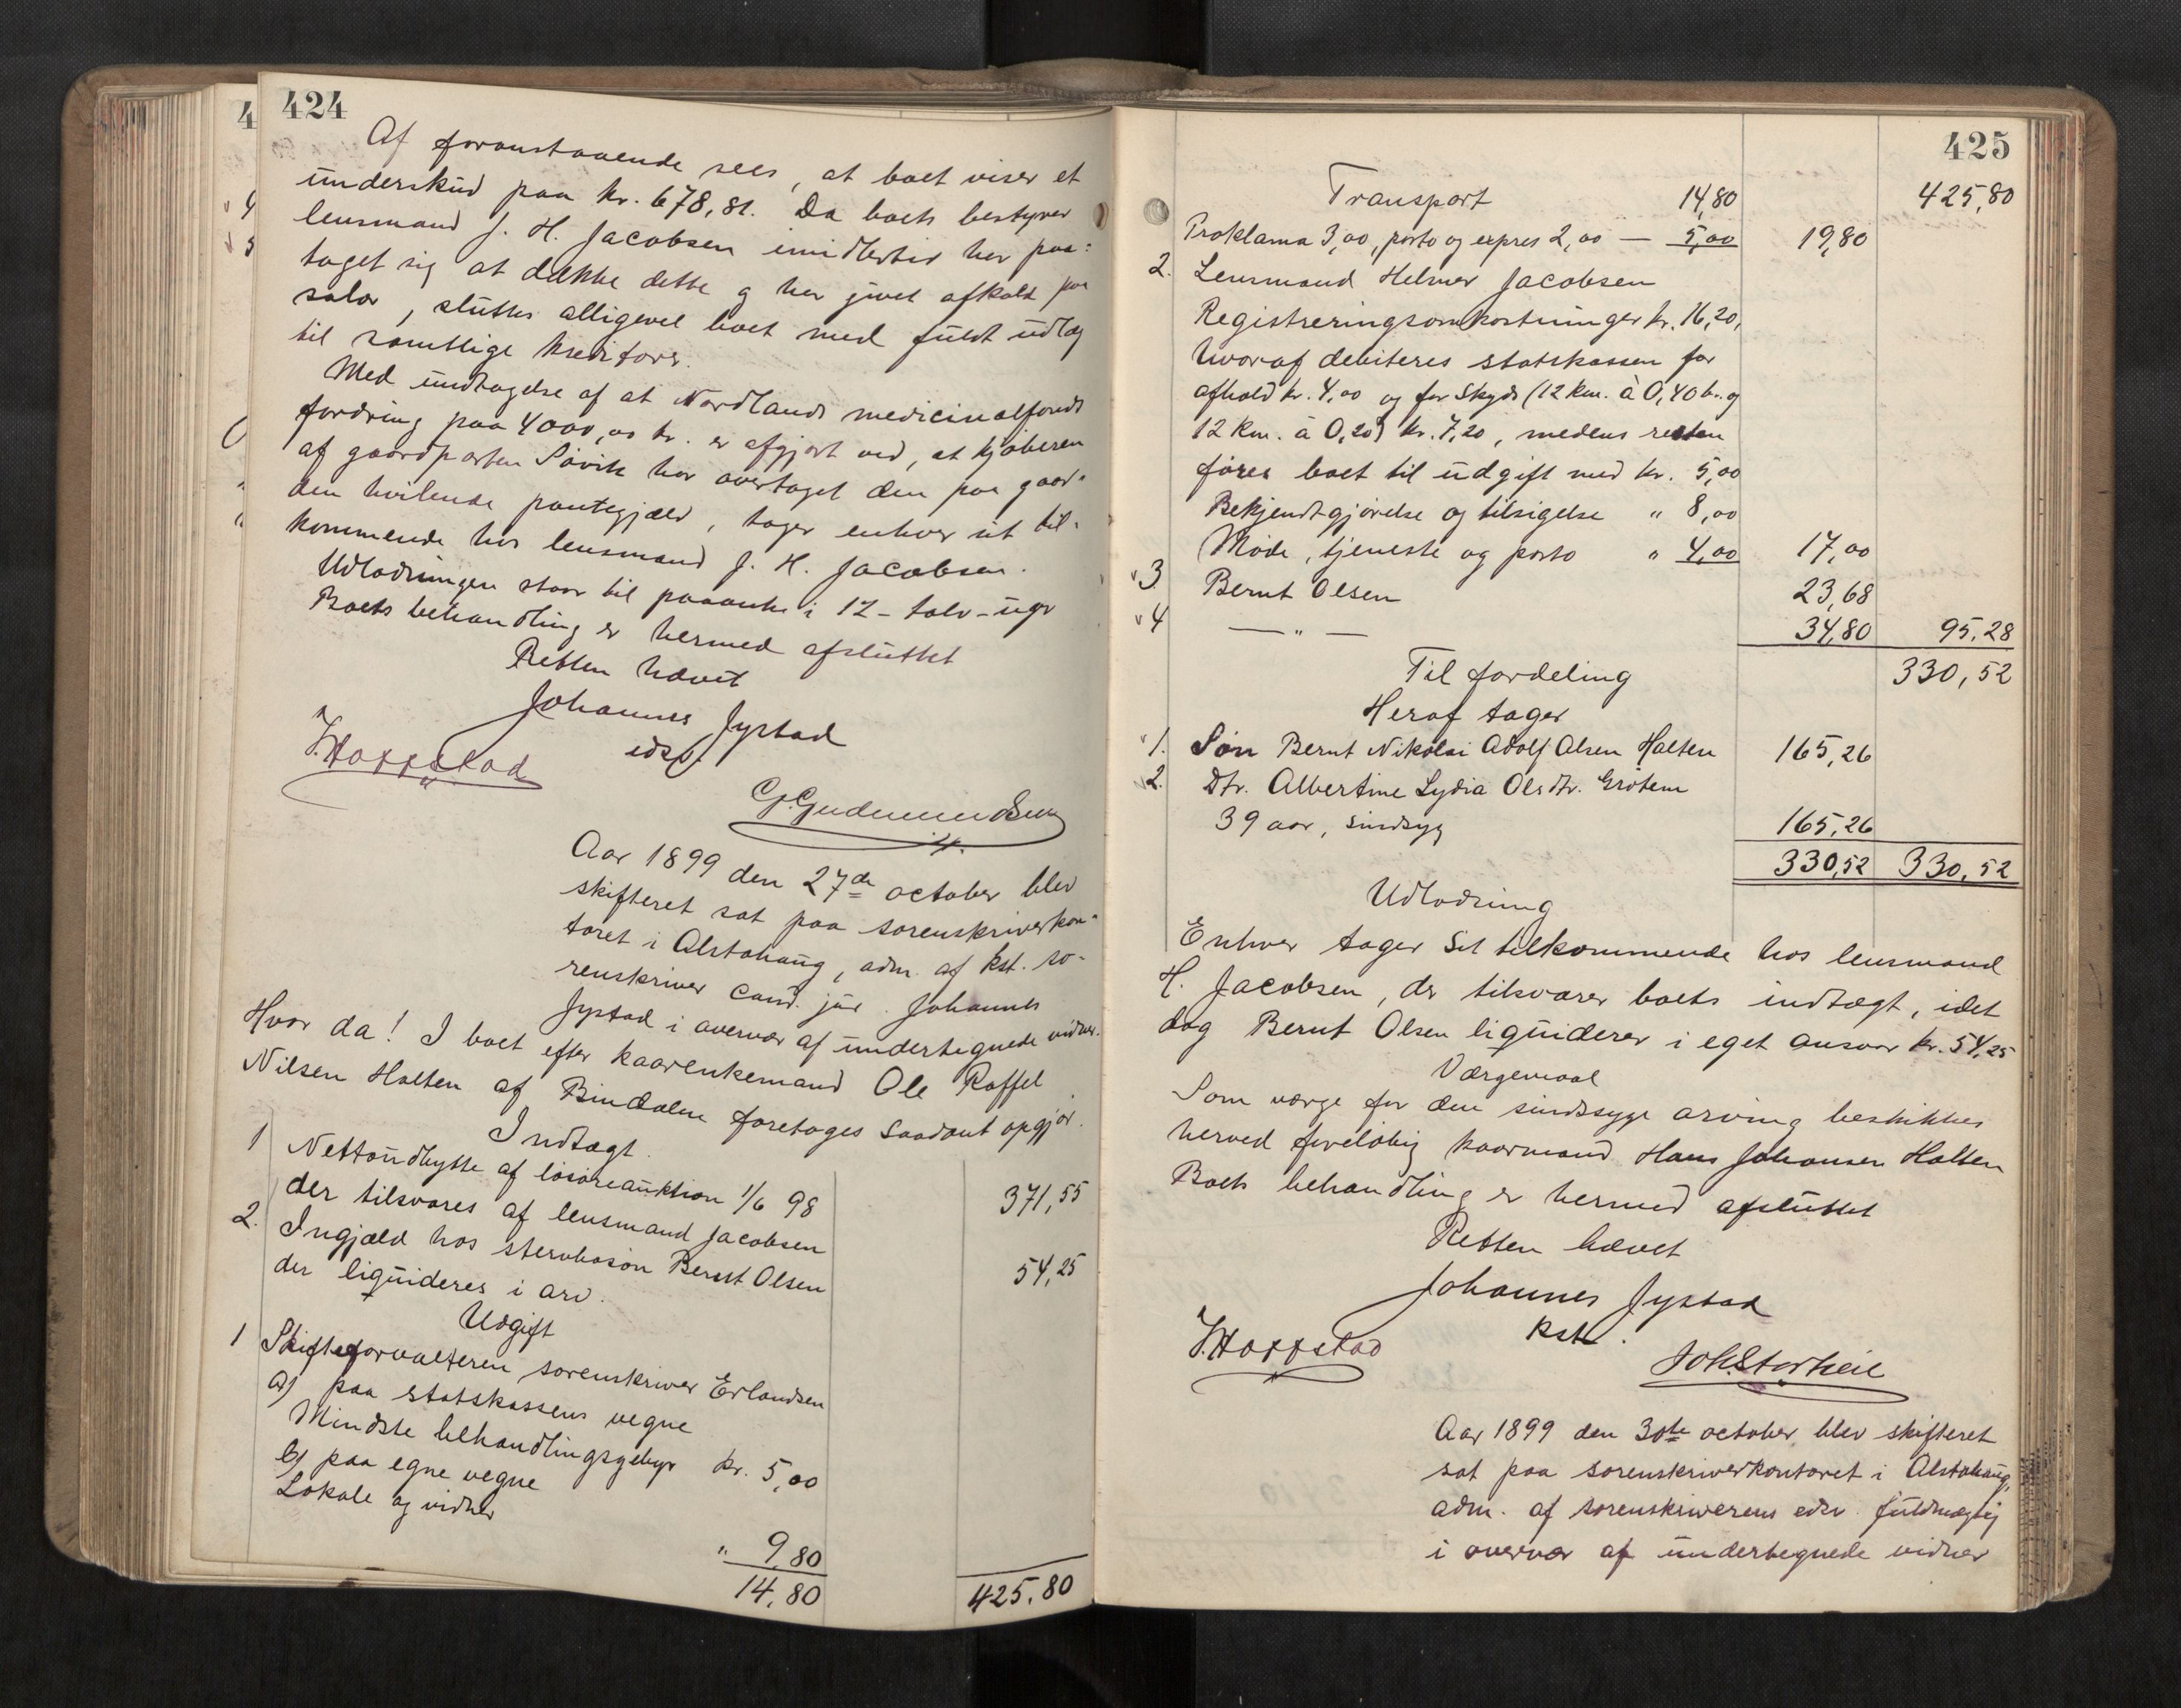 424
Af foranstaaende sees, at boet viser et
underskud paa kr. 678,81. Da boets bestyrer
lensmand J. H. Jacobsen imidlertid har paa-
taget sig at dække dette og har givet afkald paa
salær, sluttes alligevel boet med fuldt udlæg
til samtlige kreditorer.
Med undtagelse af at Nordlands medicinalfonds
fordring paa 4000,00 kr. er afgjort ved, at kjøberen
af gaardparten Søvik har overtaget den paa gaar-
den hvilende pantegjæld, tager enhver sit til-
kommende hos lensmand J. H. Jacobsen.
Udlodningen staar til paaanke i 12 - tolv - uger
Boets behandling er hermed afsluttet
Retten hævet
Johannes Jystad
edsv.
J. Hoffstad
G. Gudmundsen
Aar 1899 den 27de october blev
skifteret sat paa sorenskriverkon-
toret i Alstahaug, adm. af kst. so-
renskriver cand. jur. Johannes
Jystad i overvær af undertegnede vidner.
Hvor da! I boet efter kaarenkemand Ole Roffel
Nilsen Holten af Bindalen foretages saadant opgjør.
Indtægt.
1 Nettoudbytte af løsøreauktion 1/6 98
der tilsvares af lensmand Jacobsen 371,55
2. Ingjæld hos stervbosøn Bernt Olsen
der liquideres i arv. 54,25
Udgift
1 Skifteforvalteren sorenskriver Erlandsen
a) paa statskassens vegne
Mindste behandlingsgebyr kr. 5,00
b) paa egne vegne
Lokale og vidner
" 9,80
14,80 425,80
425
Transport 14,80 425,80
Proklama 3,00, porto og expres 2,00 — 5,00 19,80
2. Lensmand Helmer Jacobsen
Registreringsomkostninger kr. 16,20,
hvoraf debiteres statskassen for
afhold kr. 4,00 og for skyds (12 km. à 0,40 kr. og
12 km. à 0,20) kr. 7,20, medens resten
føres boet til udgift med kr. 5,00
Bekjendtgjørelse og tilsigelse " 8,00
Møde, tjeneste og porto " 4,00 17,00
3. Bernt Olsen 23,68
4 — " — 34,80 95,28
Til fordeling 330,52
Heraf tager
1. Søn Bernt Nikolai Adolf Olsen Holten 165,26
2. Dtr. Albertine Lydia Olsdtr. Grøtem
39 aar, sindsyg 165,26
330,52 330,52
Udlodning
Enhver tager sit tilkommende hos lensmand
H. Jacobsen, der tilsvarer boets indtægt, idet
dog Bernt Olsen liquiderer i eget ansvar kr. 54,25
Værgemaal
Som værge for den sindssyge arving beskikkes
herved foreløbig kaarmand Hans Johansen Holten
Boets behandling er hermed afsluttet
Retten hævet
Johannes Jystad
kst.
J. Hoffstad
Joh. Storheil
Aar 1899 den 30te october blev skifteret
sat paa sorenskriverkontoret i Alstahaug,
adm. af sorenskriverens edsv. fuldmægtig
i overvær af undertegnede vidner